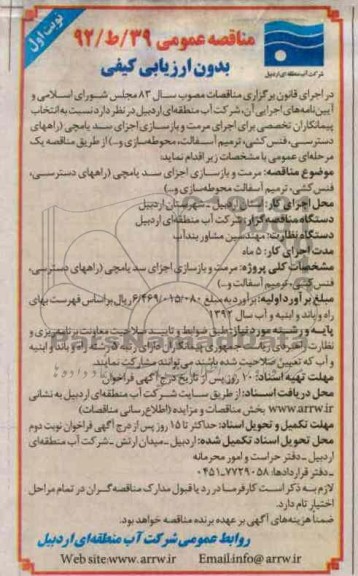 نوبت اول
مناقصه عمومی ۳۹/ط/۹۲
بدون ارزیابی کیفی
شرکت آب منطقه‌ای اردبیل
در اجرای قانون برگزاری مناقصات مصوب سال ۸۳ مجلس شورای اسلامی و
آیین‌نامه‌های اجرایی آن، شرکت آب منطقه‌ای اردبیل در نظر دارد نسبت به انتخاب
پیمانکاران تخصصی برای اجرای مرمت و بازسازی اجزای سد یامچی (راههای
دسترسی، فنس کشی، ترمیم آسفالت، محوطه‌سازی و...) از طریق مناقصه یک
مرحله‌ای عمومی با مشخصات زیر اقدام نماید:
موضوع مناقصه: مرمت و بازسازی اجزای سد یامچی (راههای دسترسی،
فنس کشی، ترمیم آسفالت محوطه‌سازی و...)
محل اجرای کار: استان اردبیل - شهرستان اردبیل
دستگاه مناقصه‌گزار: شرکت آب منطقه‌ای اردبیل
دستگاه نظارت: مهندسین مشاور بندآب
مدت اجرای کار: ۵ ماه
مشخصات کلی پروژه: مرمت و بازسازی اجزای سد یامچی (راههای دسترسی،
فنس کشی، ترمیم آسفالت و...)
مبلغ برآورد اولیه: برآورد به مبلغ ۶/۴۶۹/۰۱۵/۰۸۰ ریال براساس فهرست بهای
راه و باند و ابنیه و آب سال ۱۳۹۲
پایه و رشته مورد نیاز: طبق ضوابط و تایید صلاحیت معاونت برنامه‌ریزی و
نظارت راهبردی پیمانکاران دارای رتبه در رشته راه و باند و ابنیه
و آب که تعیین صلاحیت شده باشند می‌توانند مشارکت نمایند.
مهلت تهیه اسناد: ۱۰ روز پس از تاریخ درج آگهی فراخوان
محل دریافت اسناد: از طریق سایت شرکت آب منطقه‌ای اردبیل به نشانی
www.arrw.ir بخش مناقصات و مزایده (اطلاع‌رسانی مناقصات)
مهلت تکمیل و تحویل اسناد: حداکثر تا ۱۵ روز پس از درج آگهی فراخوان نوبت دوم
محل تحویل اسناد تکمیل شده: اردبیل - میدان ارتش - شرکت آب منطقه‌ای
اردبیل - دفتر حراست و امور محرمانه
- دفتر قراردادها: ۷۷۲۹۰۵۸-۰۴۵۱
لازم به ذکر است کارفرما در رد یا قبول مدارک مناقصه‌گران در تمام مراحل
اختیار تام دارد.
ضمنا هزینه‌های آگهی بر عهده برنده مناقصه خواهد بود.
روابط عمومی شرکت آب منطقه‌ای اردبیل
Web site:www.arrw.ir Email:info@arrw.ir